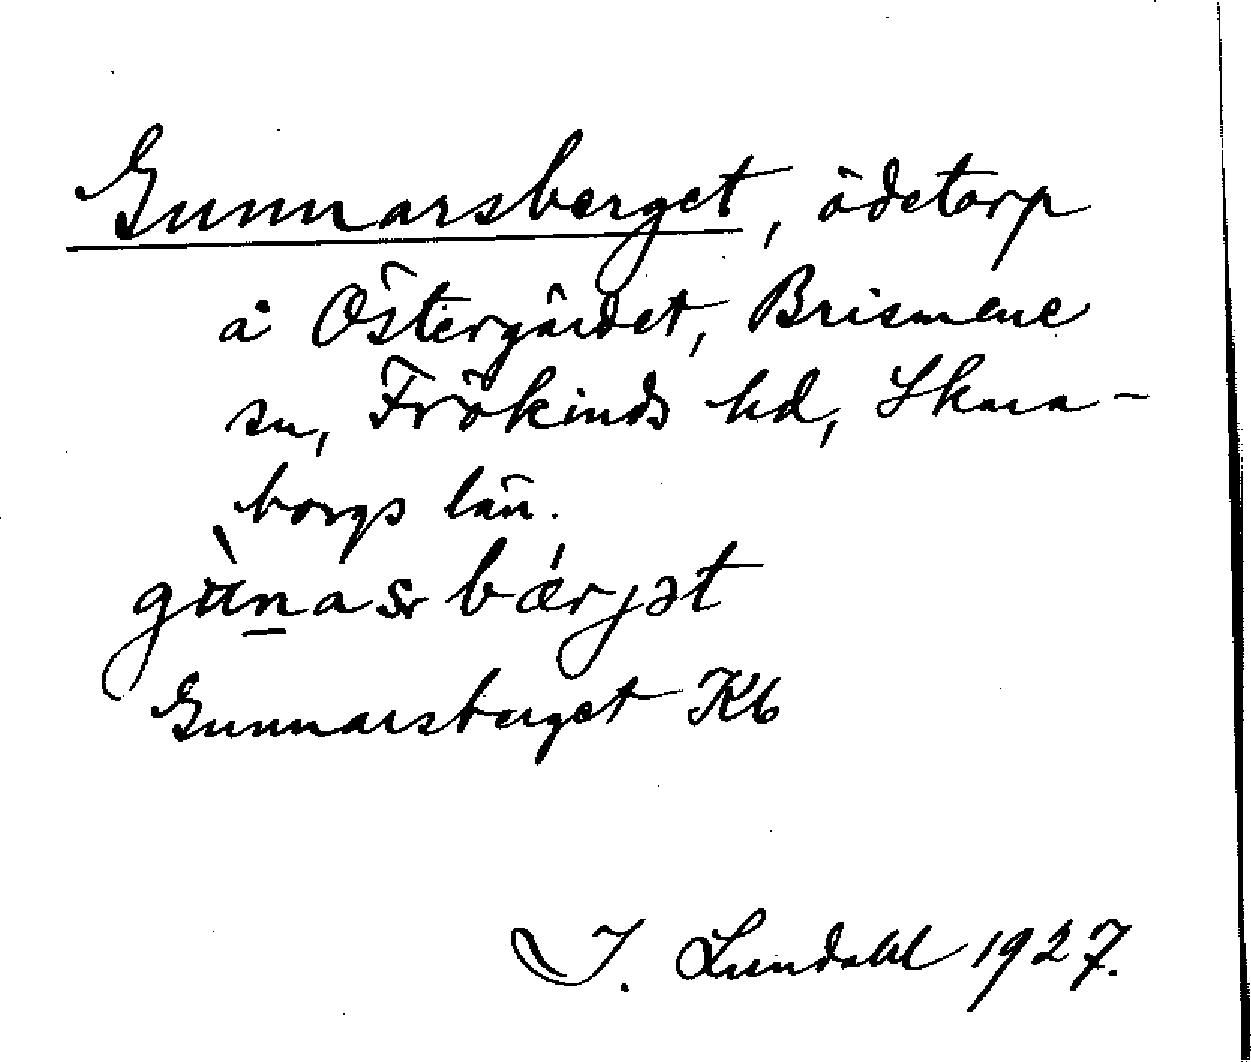 Gunnarsberget, ödetorp
å Östergärdet, Brismene
sn, Frökinds hd, Skara-
borgs län.
gùnasr bǽrjət
Gunnarsberget Kb
I. Lundahl 1927.